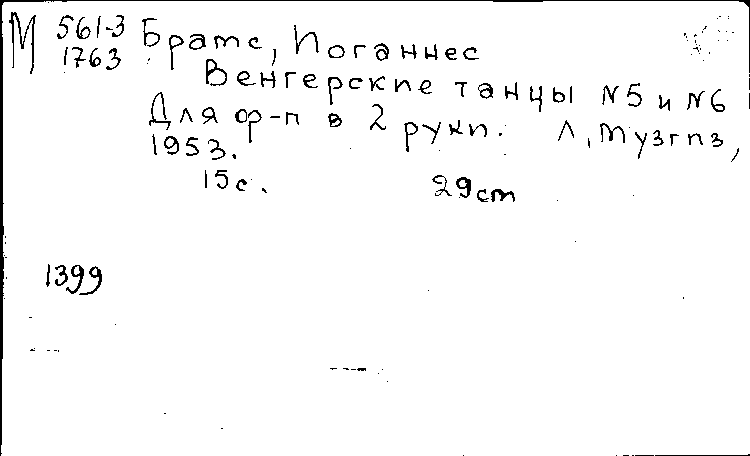 М 561-3 Брамс, Иоганнес
1763 Венгерские танцы №5 и №6
Для ф-п в 2 руки. Л, Музгиз,
1953.
15с. 29cm
1399